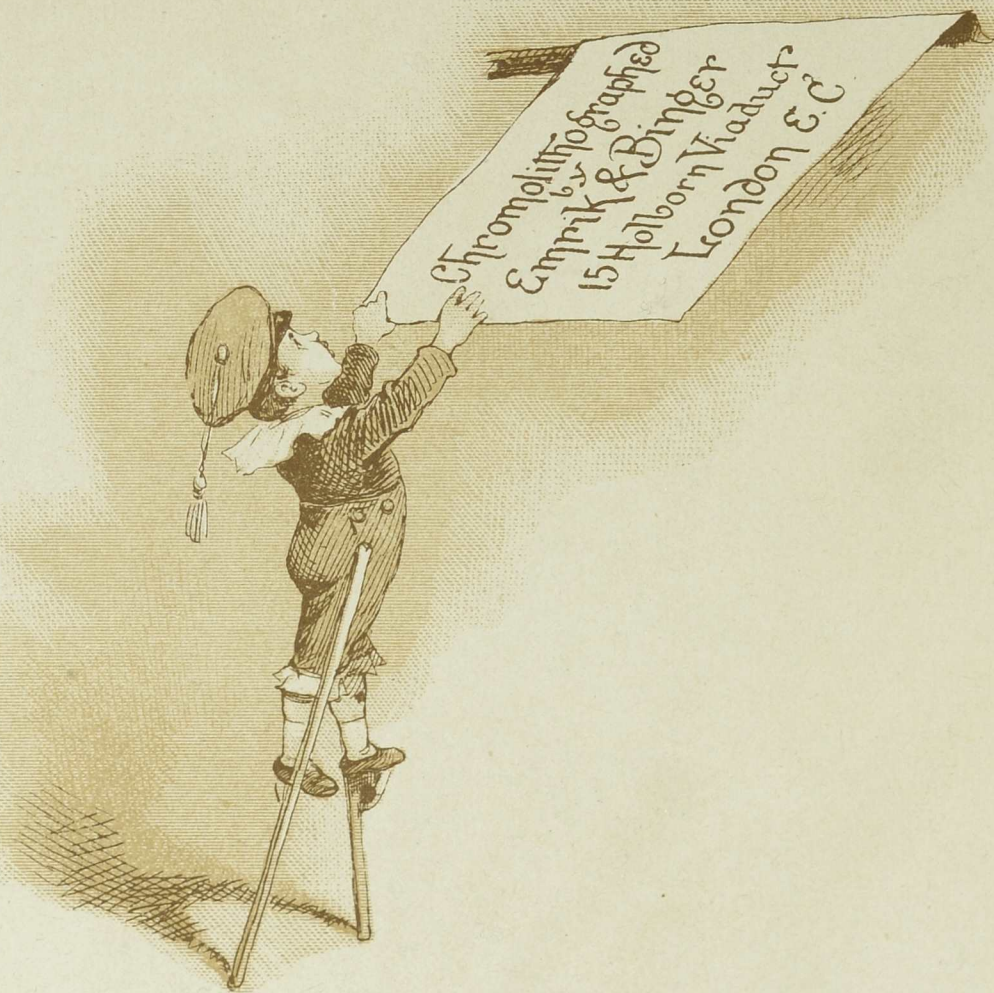 Chromolithographed
by
Emrik & Binger
15 Holborn Viaduct
London E.C